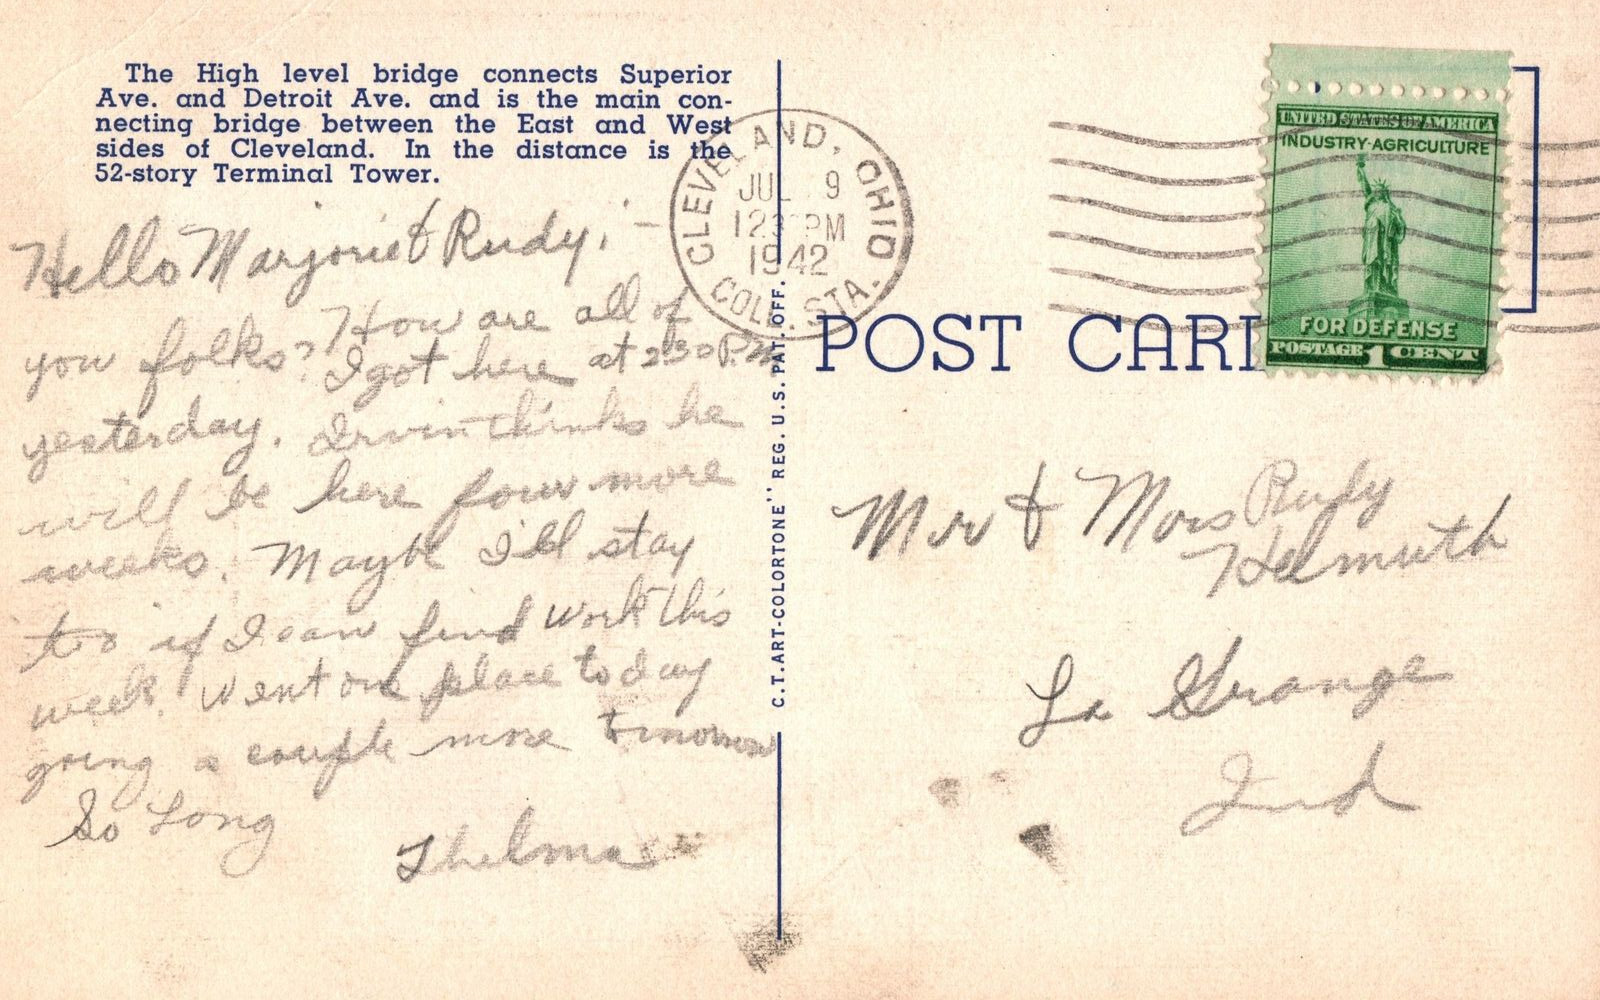 The High level bridge connects Superior
Ave. and Detroit Ave. and is the main con-
necting bridge between the East and West
sides of Cleveland. In the distance is the
52-story Terminal Tower.
Hello Marjorie & Rudy; -
How are all of
you folks? I got here at 2:30 P.M.
yesterday. Irvin thinks he
will be here four more
weeks. Maybe I'll stay
too if I can find work this
week. Went one place today
going a couple more tomorrow
So Long
Thelma
C.T. ART-COLORTONE" REG. U.S. PAT. OFF.
CLEVELAND, OHIO
JUL 9
12 PM
1942
COLL. STA.
POST CAR
UNITED STATES OF AMERICA
INDUSTRY-AGRICULTURE
FOR DEFENSE
POSTAGE 1 CENT
Mr & Mrs Rudy
Helmuth
La Grange
Ind